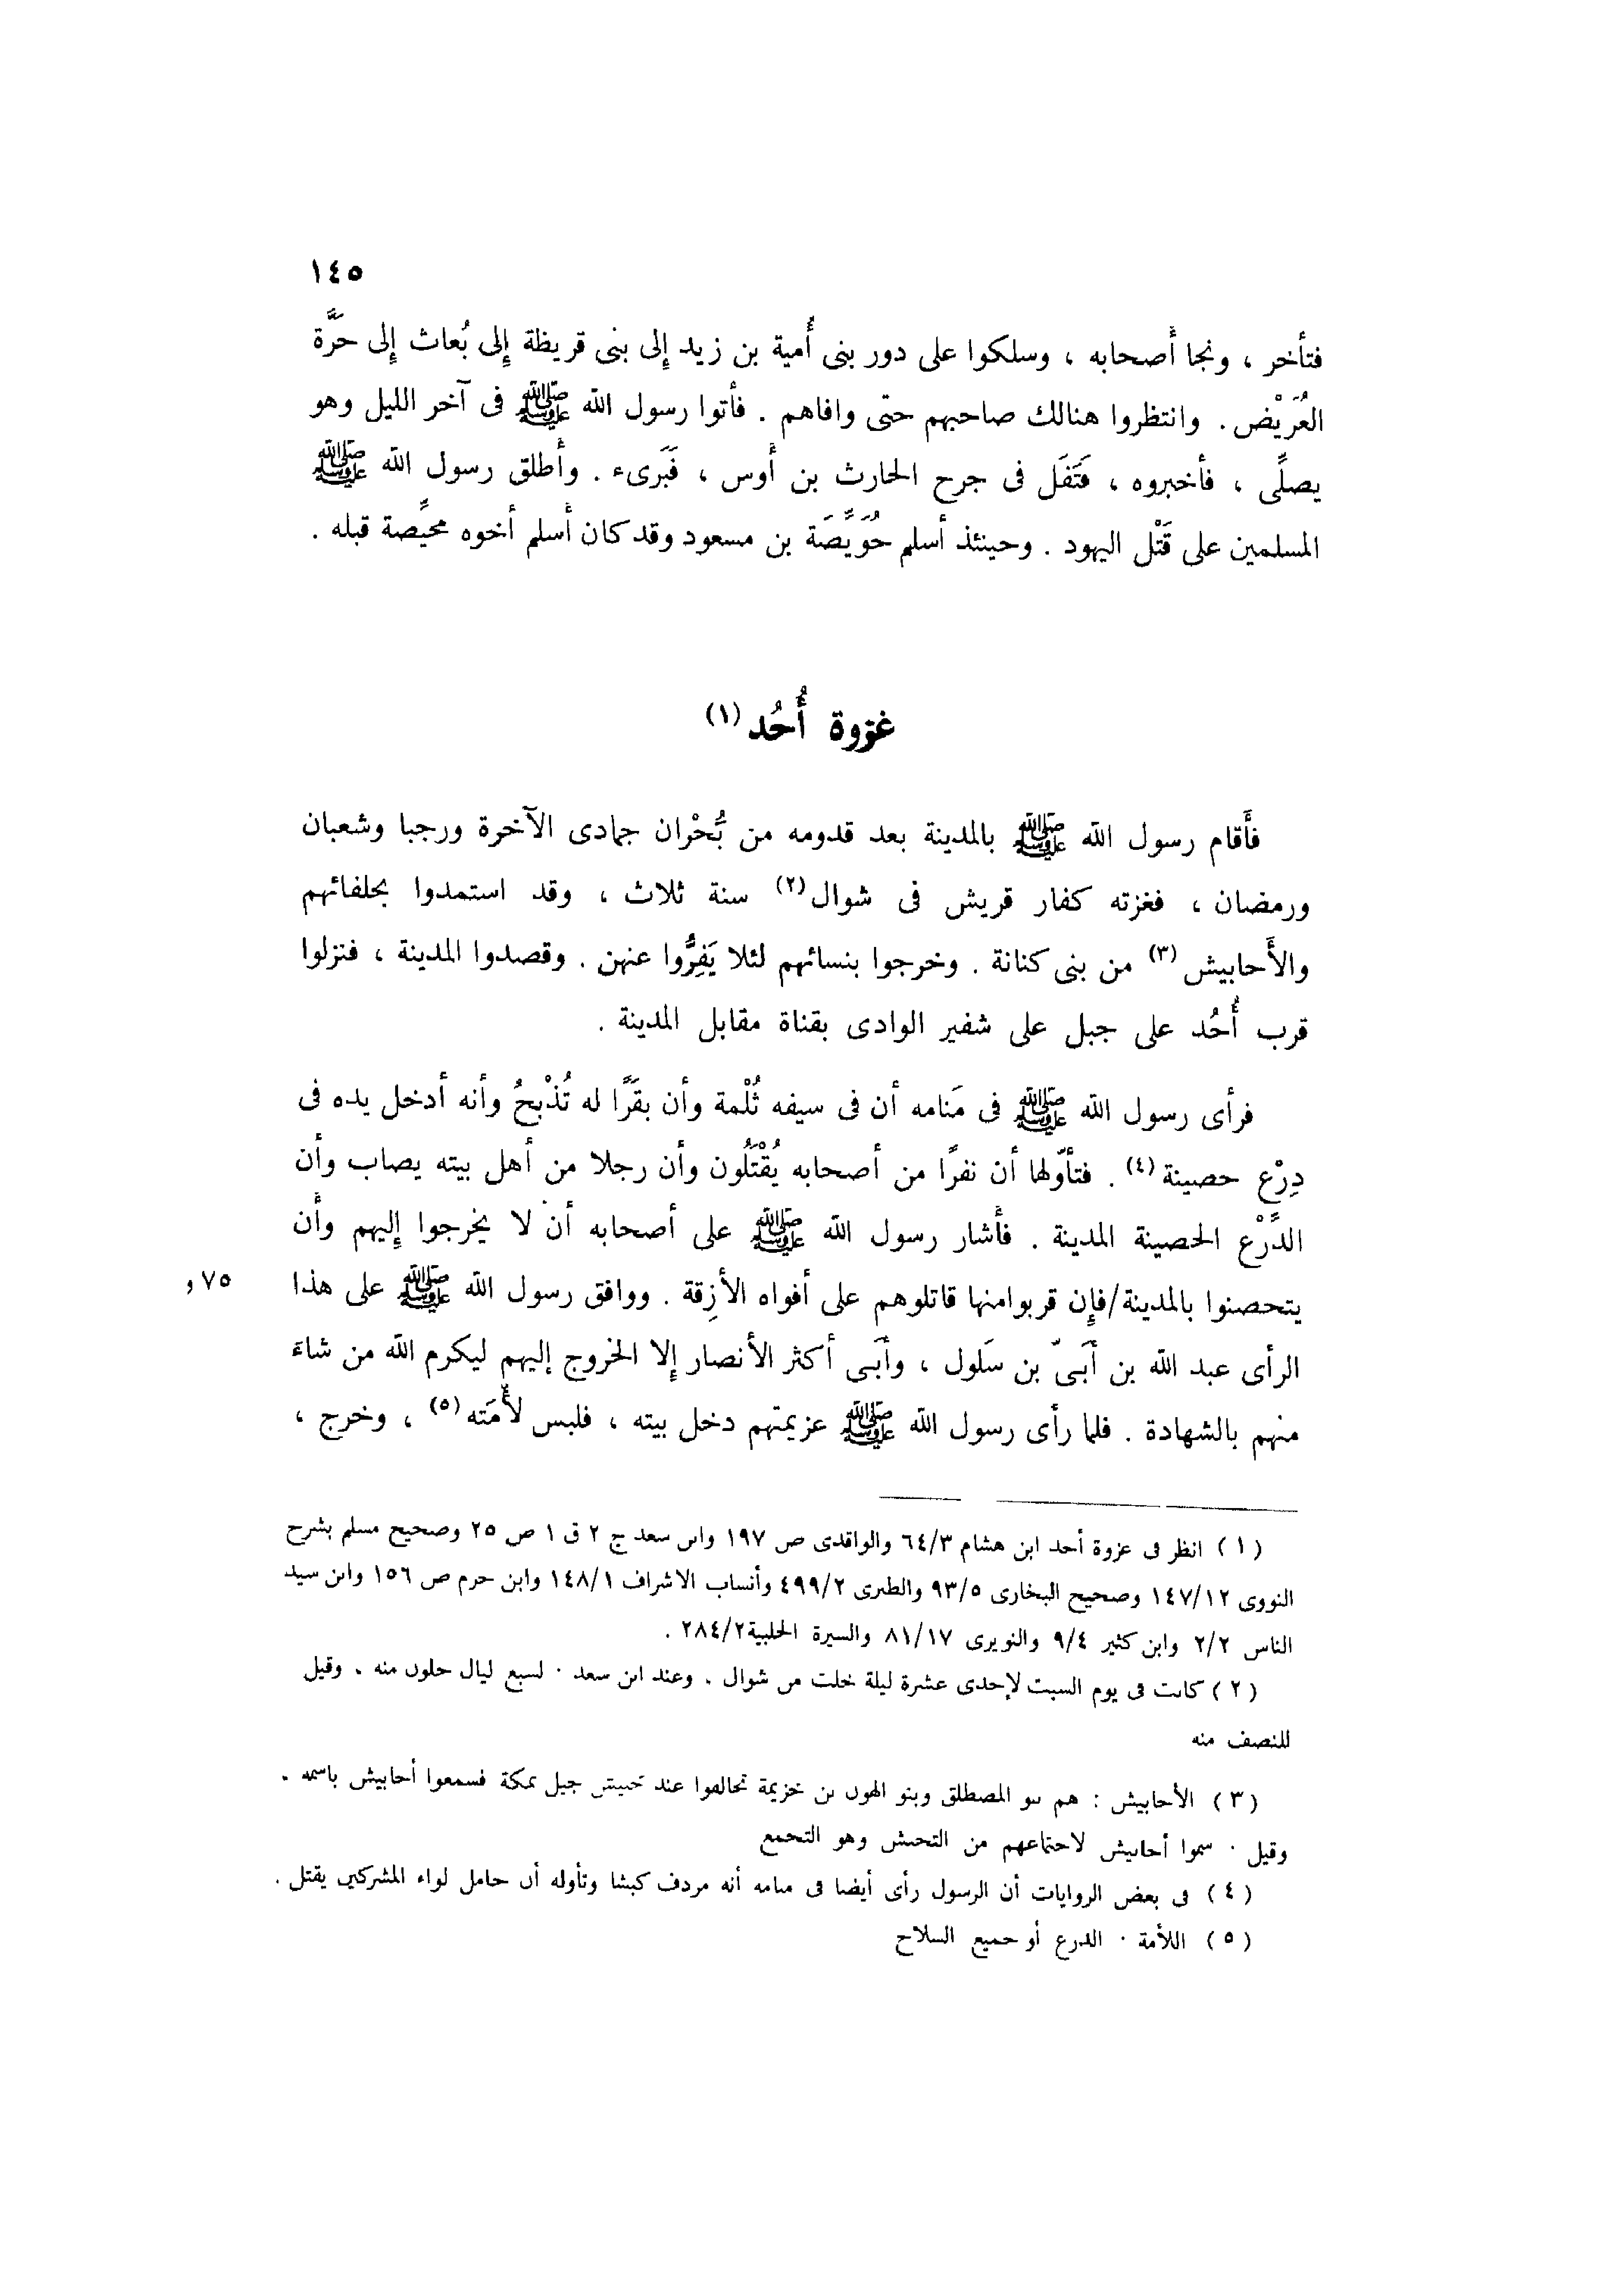 ١٤٥
فتأخر ، ونجا أصحابه ، وسلكوا على دور بنى أُمية بن زيد إلى بنى قريظة إلى بُعاث إلى حَرَّة
العُرَيْض . وانتظروا هنالك صاحبهم حتى وافاهم . فأتوا رسول الله ﷺ فى آخر الليل وهو
يصلِّى ، فأخبروه ، فَتَفَل فى جرح الحارث بن أوس ، فَبَرىء . وأطلق رسول الله ﷺ
المسلمين على قَتْل اليهود . وحينئذ أسلم حُوَيِّصَة بن مسعود وقد كان أسلم أخوه محيِّصة قبله .
غزوة أُحُد (١)
فأَقام رسول الله ﷺ بالمدينة بعد قدومه من بُحْران جمادى الآخرة ورجبا وشعبان
ورمضان ، فغزته كفار قريش فى شوال (٢) سنة ثلاث ، وقد استمدوا بحلفائهم
والأَحابيش (٣) من بنى كنانة . وخرجوا بنسائهم لئلا يَفِرُّوا عنهن . وقصدوا المدينة ، فنزلوا
قرب أُحُد على جبل على شفير الوادى بقناة مقابل المدينة .
فرأى رسول الله ﷺ فى مَنامه أن فى سيفه ثُلْمة وأن بقَرًا له تُذْبحُ وأنه أدخل يده فى
دِرْع حصينة (٤) . فتأوّلها أن نفرًا من أصحابه يُقْتَلُون وأن رجلا من أهل بيته يصاب وأن
الدِّرْع الحصينة المدينة . فأشار رسول الله ﷺ على أصحابه أن لا يخرجوا إليهم وأن
يتحصنوا بالمدينة/فإن قربوامنها قاتلوهم على أفواه الأزِقة . ووافق رسول الله ﷺ على هذا
٧٥ و
الرأى عبد الله بن أُبَىّ بن سَلول ، وأَبَى أكثر الأنصار إلا الخروج إليهم ليكرم الله من شاءَ
منهم بالشهادة . فلما رأى رسول الله ﷺ عزيمتهم دخل بيته ، فلبس لأْمَته (٥) ، وخرج ،
(١) انظر فى غزوة أحد ابن هشام ٦٤/٣ والواقدى ص ١٩٧ وابن سعد ج ٢ ق ١ ص ٢٥ وصحيح مسلم بشرح
النووى ١٤٧/١٢ وصحيح البخارى ٩٣/٥ والطبرى ٤٩٩/٢ وأنساب الاشراف ١٤٨/١ وابن حزم ص ١٥٦ وابن سيد
الناس ٢/٢ وابن كثير ٩/٤ والنويرى ٨١/١٧ والسيرة الحلبية ٢٨٤/٢ .
(٢) كانت فى يوم السبت لإحدى عشرة ليلة خلت من شوال . وعند ابن سعد . لسبع ليال خلون منه . وقيل
للنصف منه
(٣) الأحابيش : هم بنو المصطلق وبنو الهون بن خزيمة تحالفوا عند حبيش جبل بمكة فسمعوا أحابيش باسمه .
وقيل . سموا أحابيش لاجتماعهم من التحبش وهو التجمع
(٤) فى بعض الروايات أن الرسول رأى أيضا فى منامه أنه مردف كبشا وتأوله أن حامل لواء المشركين يقتل .
(٥) اللأمة . الدرع أو جميع السلاح